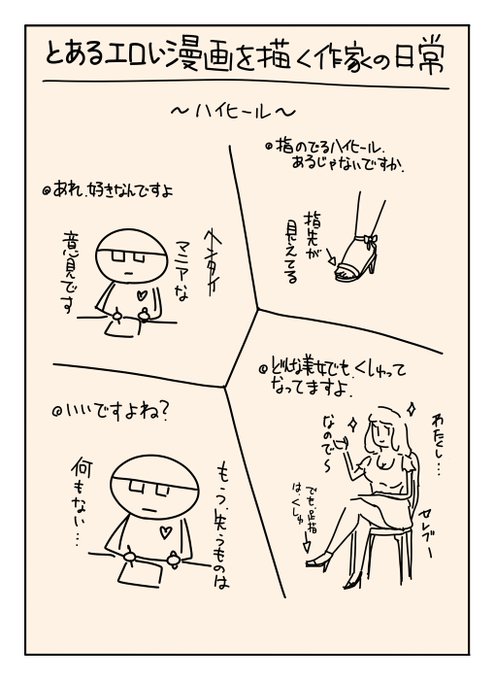 とあるエロい漫画を描く作家の日常
〜ハイヒール〜
◎指のでるハイヒール、
あるじゃないですか、
指先が
見えてる
◎あれ、好きなんですよ
ヘンタイ
マニアな
意見です
◎どんな美女でも、くしゅって
なってますよ、
わたくし…
セレブー
なので〜
でも、足指
は、くしゅ
◎いいですよね?
もう、失うものは
何もない…